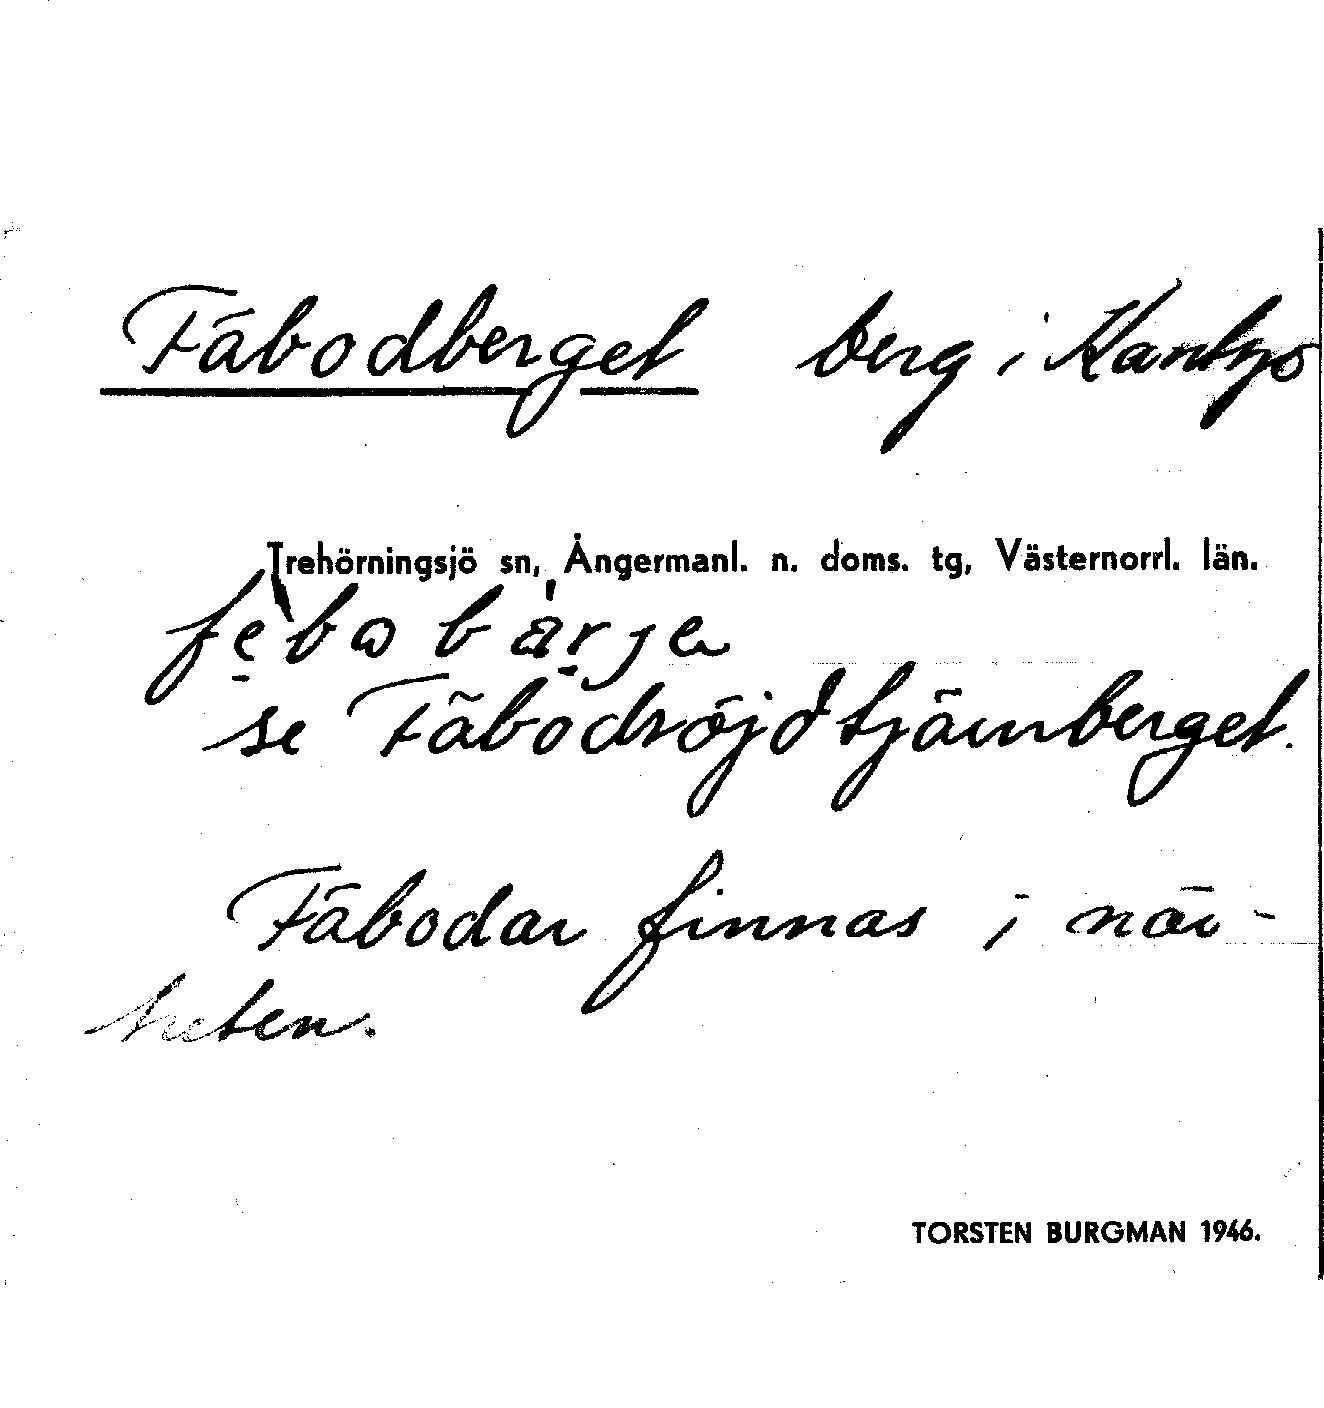 Fäbodberget berg i Kantsjö
Trehörningsjö sn, Ångermanl. n. doms. tg, Västernorrl. län.
se Fäbodröjdtjärnberget.
Fäbodar finnas i när-
heten.
TORSTEN BURGMAN 1946.